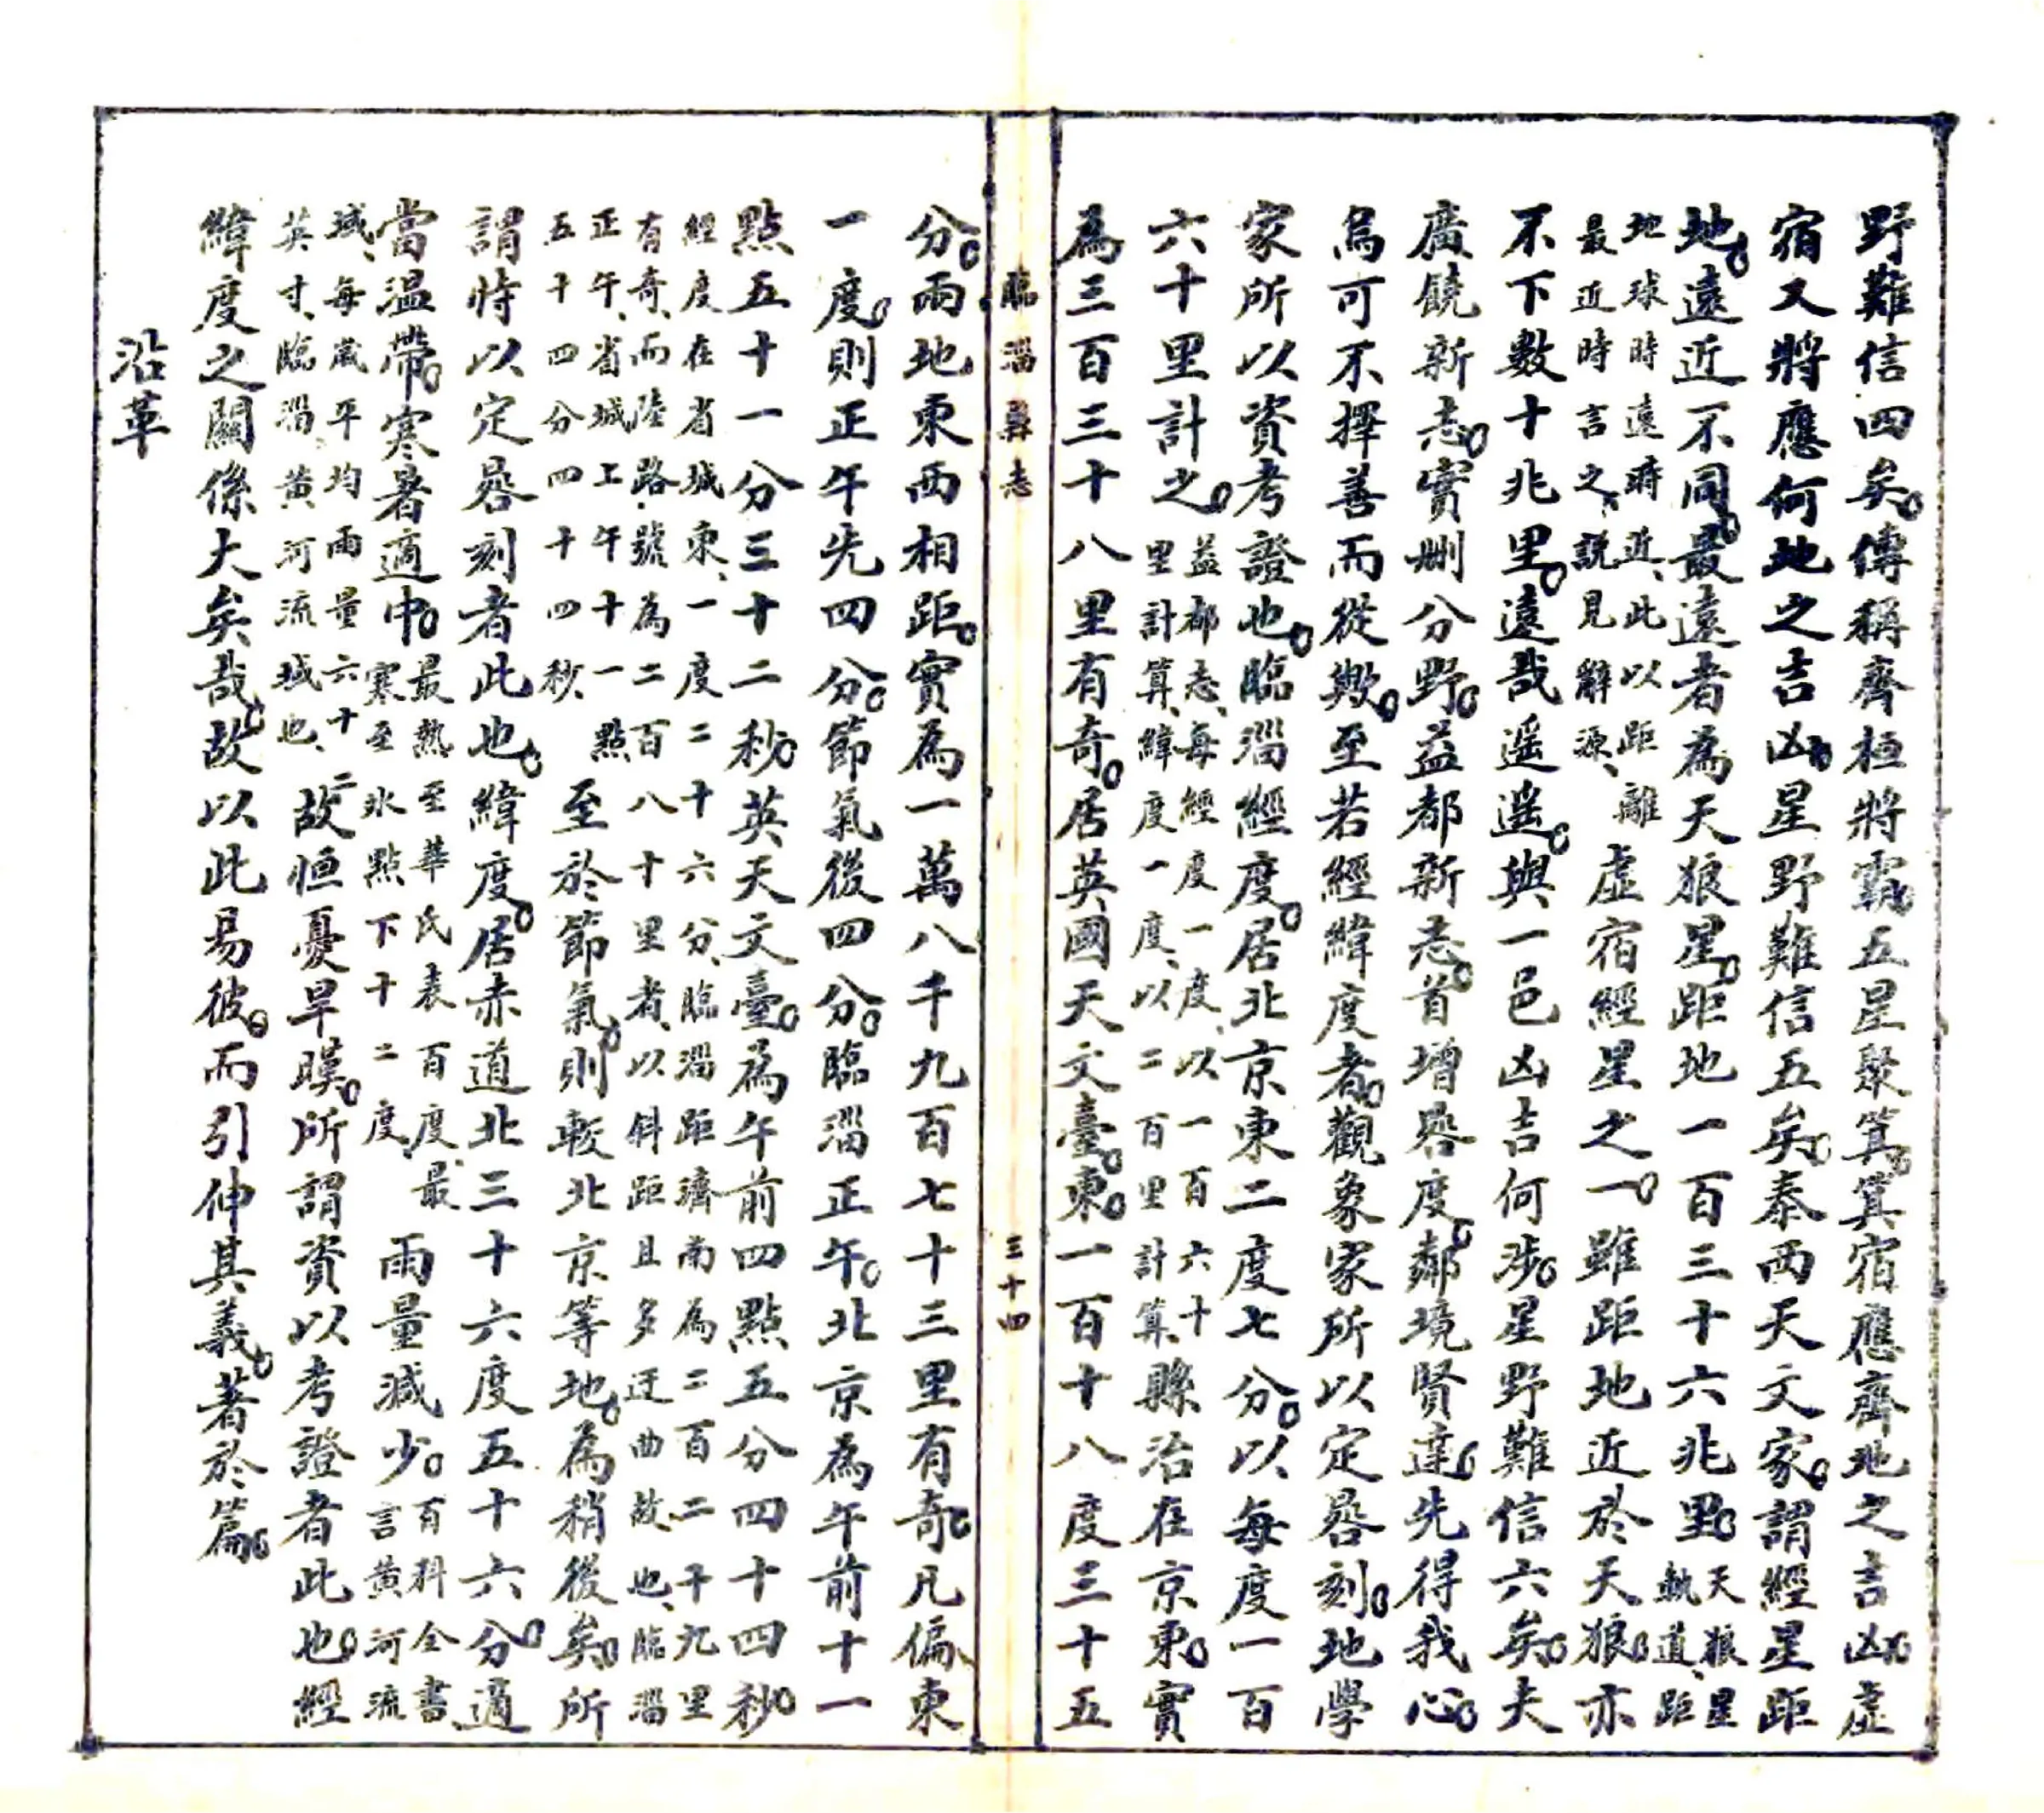 野難信四矣傳稱齊桓將霸五星聚箕箕宿應齊地之言凶虛
宿又將應何地之吉凶星野難信五矣泰西天文家謂經星距
地遠近不同最遠者為天狼星距地一百三十六兆里天狼星
軌道距
地球時遠時近此以距離
最近時言之說見辭源虛宿經星之一雖距地近於天狼亦
不下數十兆里遠哉遥遥與一邑凶吉何涉星野難信六矣夫
廣饒新志實刪分野益都新志首增晷度鄰境賢達先得我心
烏可不擇善而從歟至若經緯度者觀象家所以定晷刻地學
家所以資考證也臨淄經度居北京東二度七分以每度一百
六十里計之益都志每經度一度以一百六十
里計算緯度一度以二百里計算縣治在京東實
為三百三十八里有奇居英國天文臺東一百十八度三十五
臨淄縣志
三十四
分兩地東西相距實為一萬八千九百七十三里有奇凡偏東
一度則正午先四分節氣後四分臨淄正午北京為午前十一
點五十一分三十二秒英天文臺為午前四點五分四十四秒
經度在省城東一度二十六分臨淄距濟南為二百二十九里
有奇而陸路號為二百八十里者以斜距且多迂曲故也臨淄
正午省城上午十一點
五十四分四十四秒至於節氣則較北京等地為稍後矣所
謂時以定晷刻者此也緯度居赤道北三十六度五十六分適
當温帶寒暑適中最熱至華氏表百度最
寒至冰點下十二度雨量減少百科全書
言黃河流
域每歲平均雨量六十
英寸臨淄黃河流域也故恒憂旱暵所謂資以考證者此也經
緯度之關係大矣哉故以此易彼而引伸其義著於篇
沿革